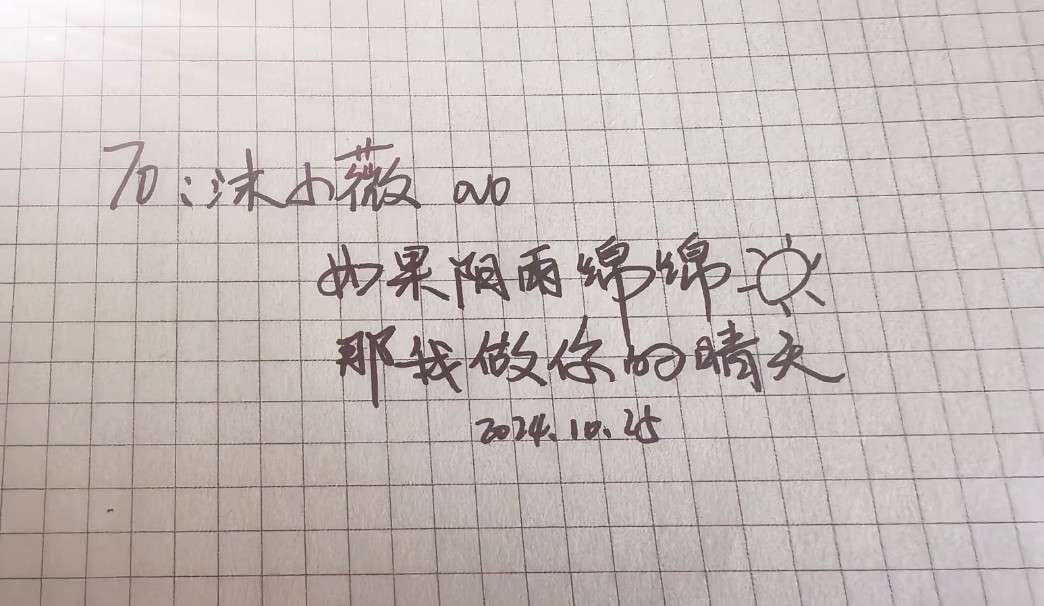 To：沫小薇
如果阴雨绵绵
那我做你的晴天
2024.10.25